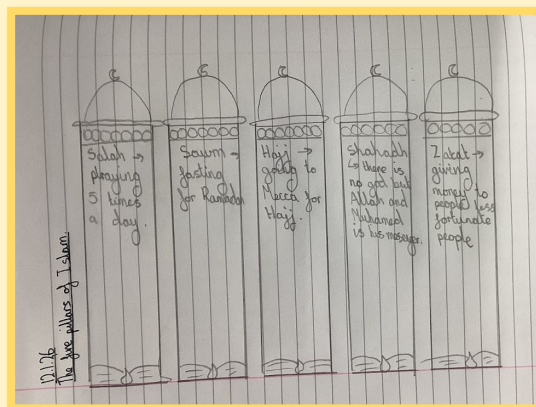 12.1.26
The five pillars of Islam.
Salah →
praying
5 times
a day.
Sawm →
fasting
for Ramadan
Hajj →
going to
Mecca for
Hajj.
Shahadh
↳ there is
no god but
Allah and
Muhamed
is his messenger.
Zakat →
giving
money to
people less
fortunate
people